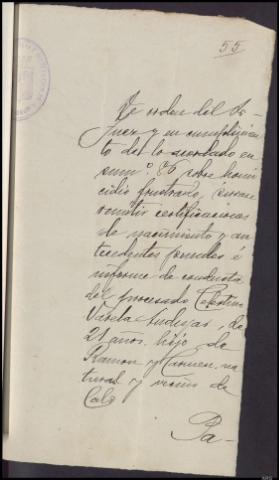 55
De orden del Sr
Juez y en cumplimien
to de lo acordado en
sum.º 86 sobre homi
cidio frustrado, 
remitir certificaciones
de nacimiento y an
tecedentes penales é
informe de conducta
del procesado Celestino
Varela Andujar, de
21 años. hijo de
Ramon y Carmen, na
tural y vecino de
Pa-